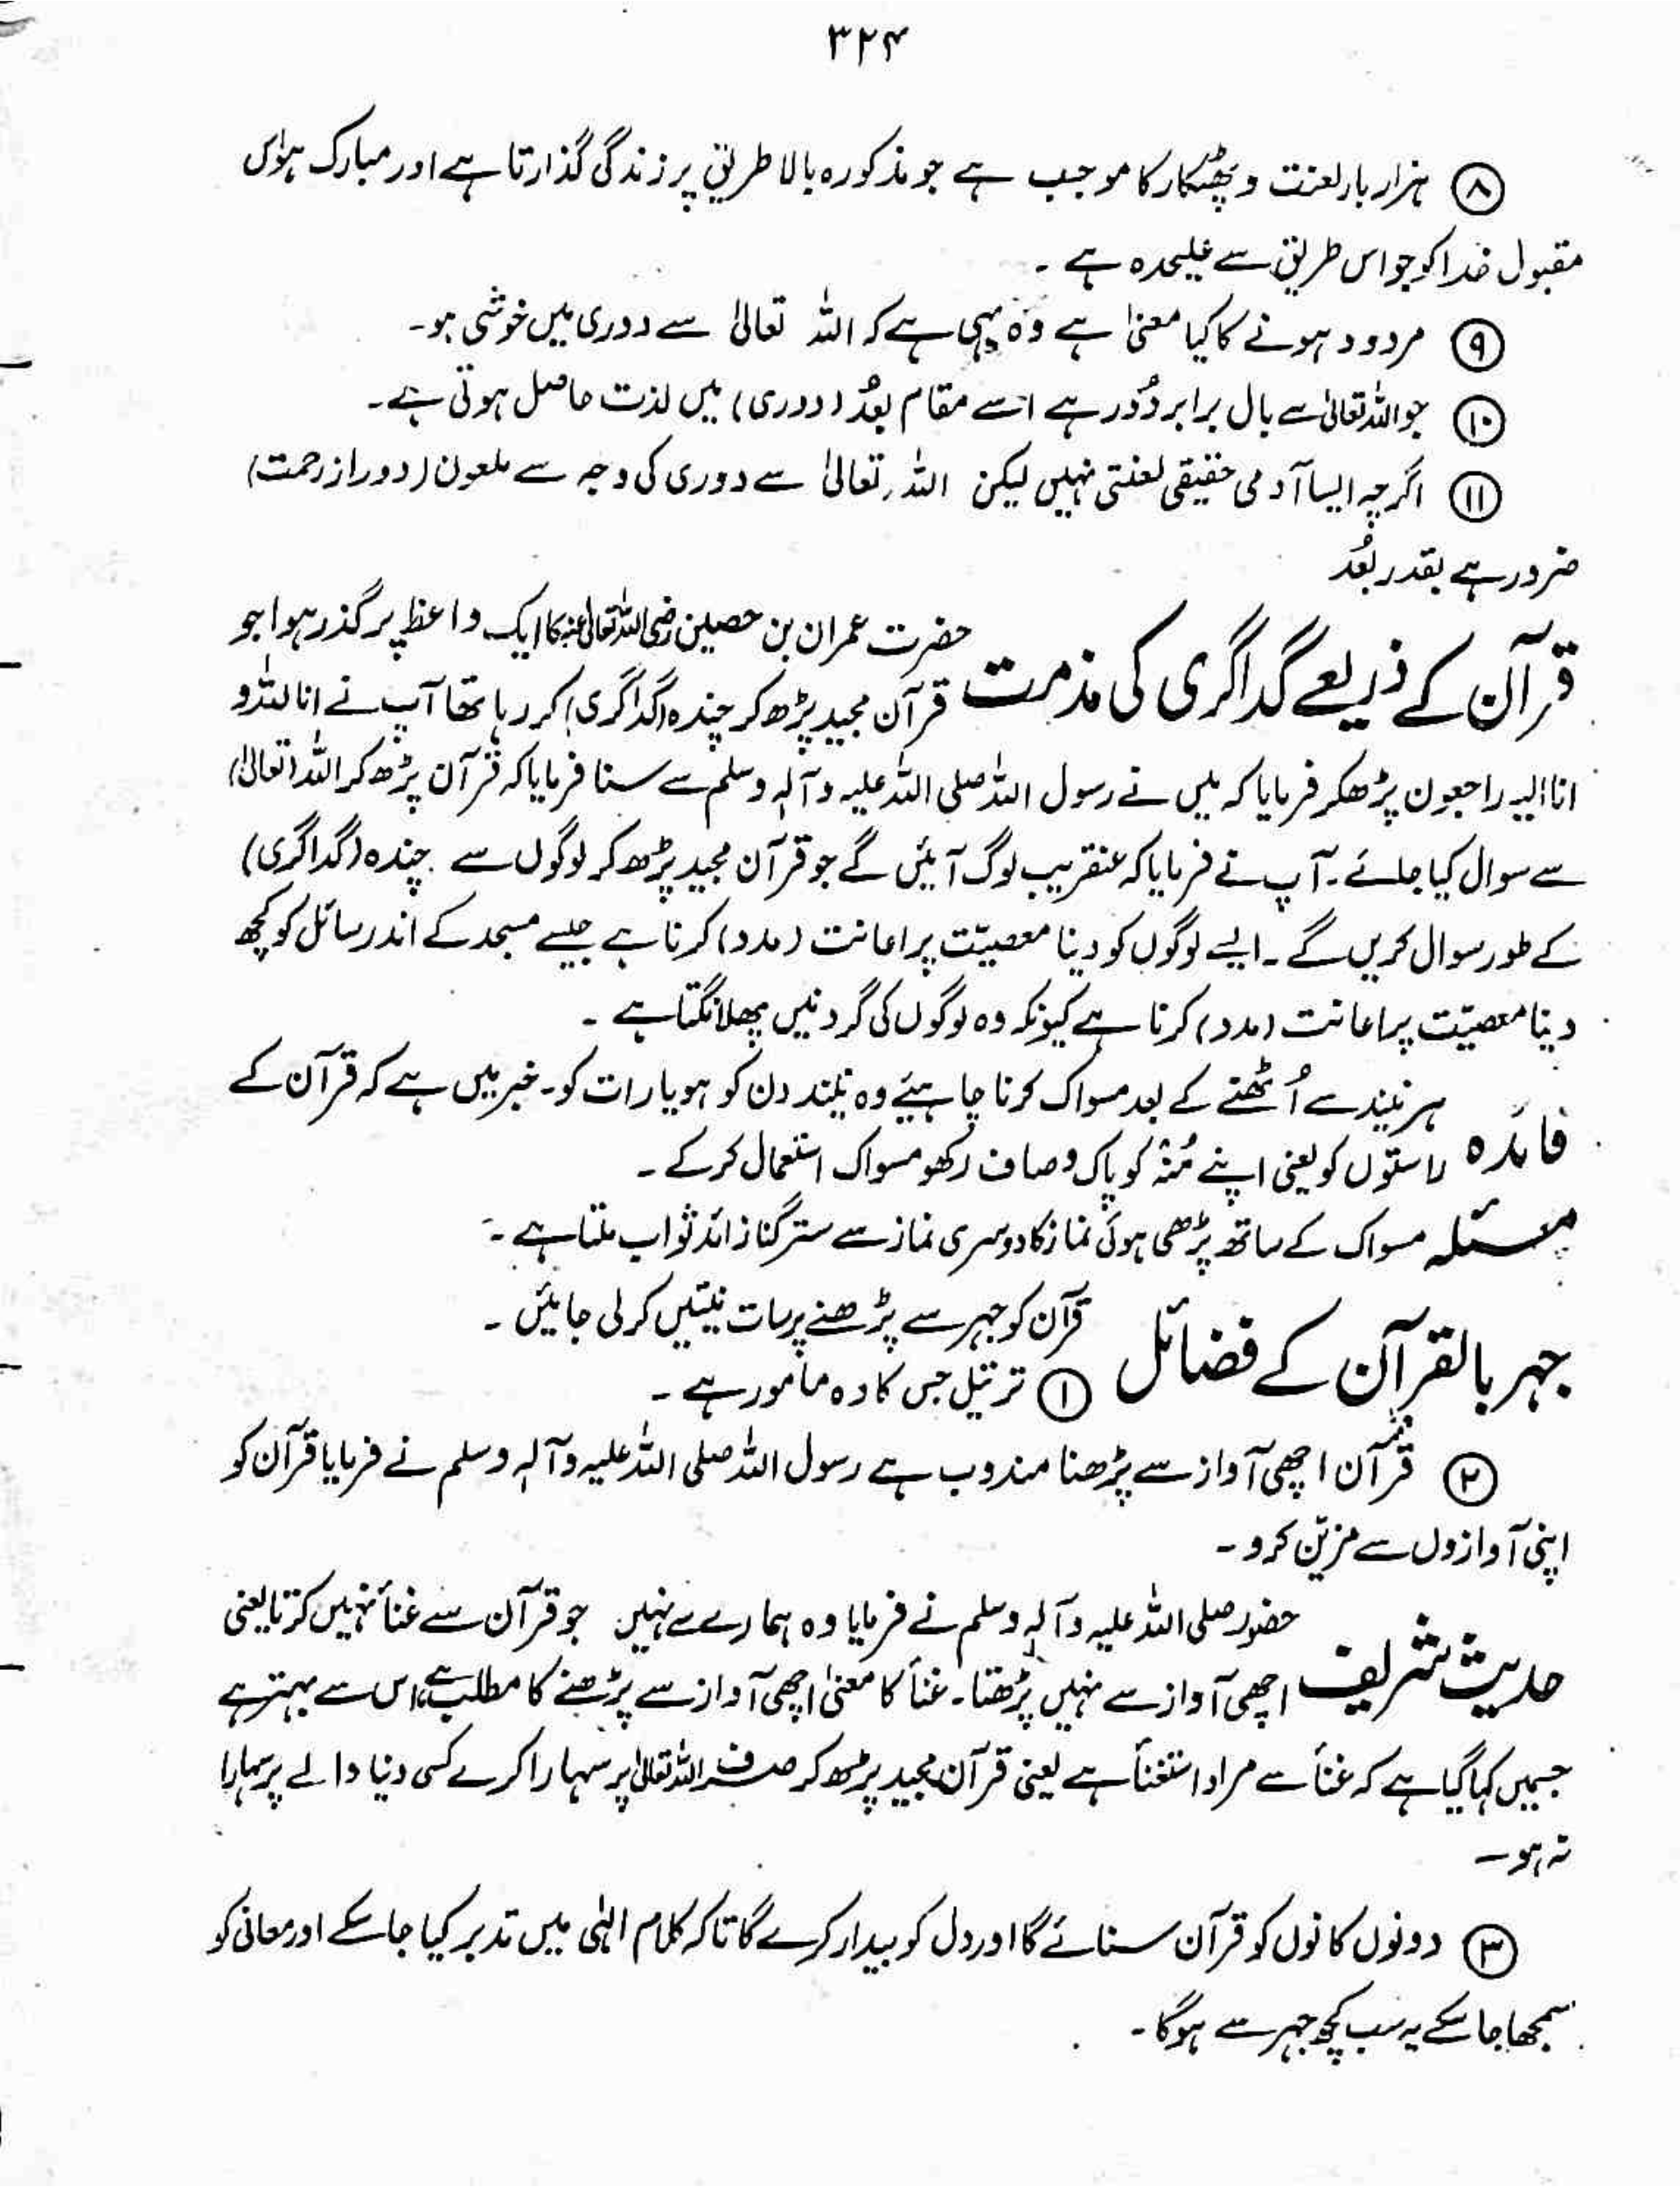 ۳۲۴
⑧ ہزار بار لعنت و پھٹکار کا موجب ہے جو مذکورہ بالا طریق پر زندگی گذارتا ہے اور مبارک ہو اس
مقبول خدا کو جو اس طریق سے علیحدہ ہے ۔
⑨ مردود ہونے کا کیا معنیٰ ہے وہ یہی ہے کہ اللہ تعالیٰ سے دوری میں خوشی ہو۔
⑩ جو اللہ تعالیٰ سے بال برابر دُور ہے اسے مقام بعُد (دوری) میں لذت حاصل ہوتی ہے۔
⑪ اگرچہ ایسا آدمی حقیقی لعنتی نہیں لیکن اللہ تعالیٰ سے دوری کی وجہ سے ملعون (دور از رحمت)
ضرور ہے بقدر بُعد
قرآن کے ذریعے گداگری کی مذمت حضرت عمران بن حصین رضی اللہ تعالیٰ عنہ کا ایک واعظ پر گذر ہوا جو
قرآن مجید پڑھ کر چندہ (گداگری) کر رہا تھا آپ نے انا للہ و
انا الیہ راجعون پڑھکر فرمایا کہ میں نے رسول اللہ صلی اللہ علیہ وآلہ وسلم سے سنا فرمایا کہ قرآن پڑھ کر اللہ (تعالیٰ)
سے سوال کیا جائے۔ آپ نے فرمایا کہ عنقریب لوگ آئیں گے جو قرآن مجید پڑھ کر لوگوں سے چندہ (گداگری)
کے طور سوال کریں گے ۔ ایسے لوگوں کو دینا معصیّت پر اعانت (مدد) کرنا ہے جیسے مسجد کے اندر سائل کو کچھ
دینا معصیّت پر اعانت (مدد) کرنا ہے کیونکہ وہ لوگوں کی گردنیں پھلانگتا ہے ۔
فائدہ ہر نیند سے اُٹھنے کے بعد مسواک کرنا چاہیئے وہ نیند دن کو ہو یا رات کو۔ خبر میں ہے کہ قرآن کے
راستوں کو یعنی اپنے مُنہ کو پاک و صاف رکھو مسواک استعمال کرکے ۔
مسئلہ مسواک کے ساتھ پڑھی ہوئی نماز کا دوسری نماز سے ستر گنا زائد ثواب ملتا ہے ۔
جہر بالقرآن کے فضائل قرآن کو جہر سے پڑھنے پر سات نیتیں کر لی جائیں ۔
① ترتیل جس کا وہ مامور ہے ۔
② قرآن اچھی آواز سے پڑھنا مندوب ہے رسول اللہ صلی اللہ علیہ وآلہ وسلم نے فرمایا قرآن کو
اپنی آوازوں سے مزیّن کرو ۔
حدیث شریف حضور صلی اللہ علیہ وآلہ وسلم نے فرمایا وہ ہمارے سے نہیں جو قرآن سے غنأ نہیں کرتا یعنی
اچھی آواز سے نہیں پڑھتا۔ غنأ کا معنیٰ اچھی آواز سے پڑھنے کا مطلب ہے، اس سے بہتر ہے
جسمیں کہا گیا ہے کہ غنأ سے مراد استغنأ ہے یعنی قرآن مجید پڑھ کر صرف اللہ تعالیٰ پر سہارا کرے کسی دنیا والے پر سہارا
نہ ہو ۔
③ دونوں کانوں کو قرآن سنائے گا اور دل کو بیدار کرے گا تاکہ کلام الہٰی میں تدبر کیا جا سکے اور معانی کو
سمجھا جا سکے یہ سب کچھ جہر سے ہوگا ۔